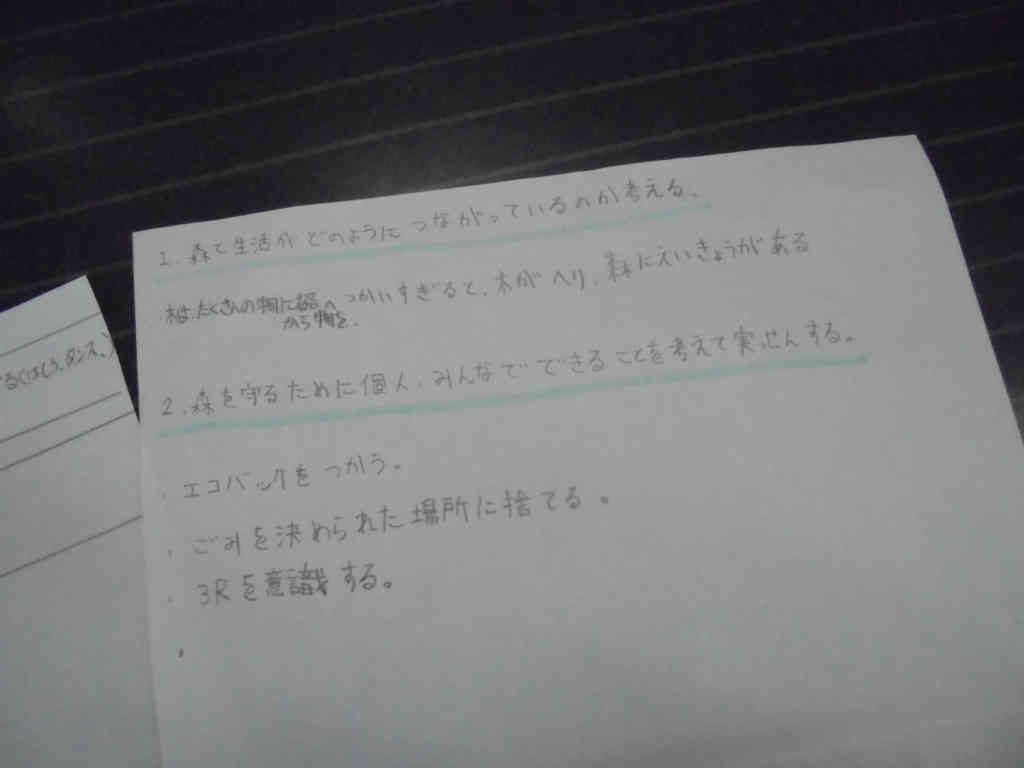 1. 森と生活がどのようにつながっているのか考える。
木は、たくさんの物に つかいすぎると、木がへり、森にえいきょうがある
から物を、
2. 森を守るために個人、みんなでできることを考えて実せんする。
・エコバックをつかう。
・ごみを決められた場所に捨てる。
・3Rを意識する。
・
はしら、タンス、)